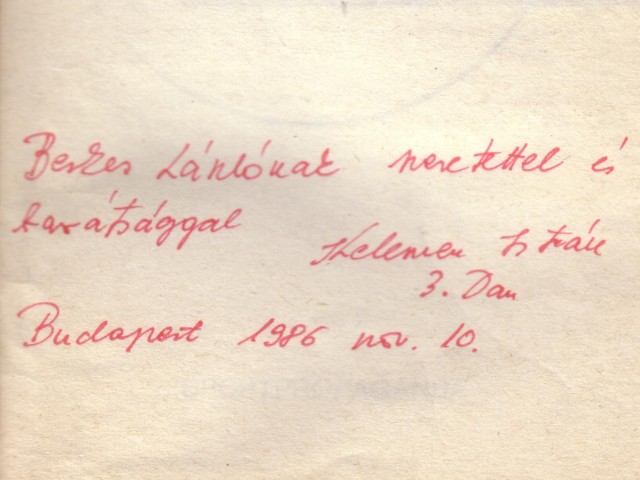 Berkes Lászlónak szeretettel és
barátsággal
Kelemen István
3. Dan
Budapest 1986 nov. 10.